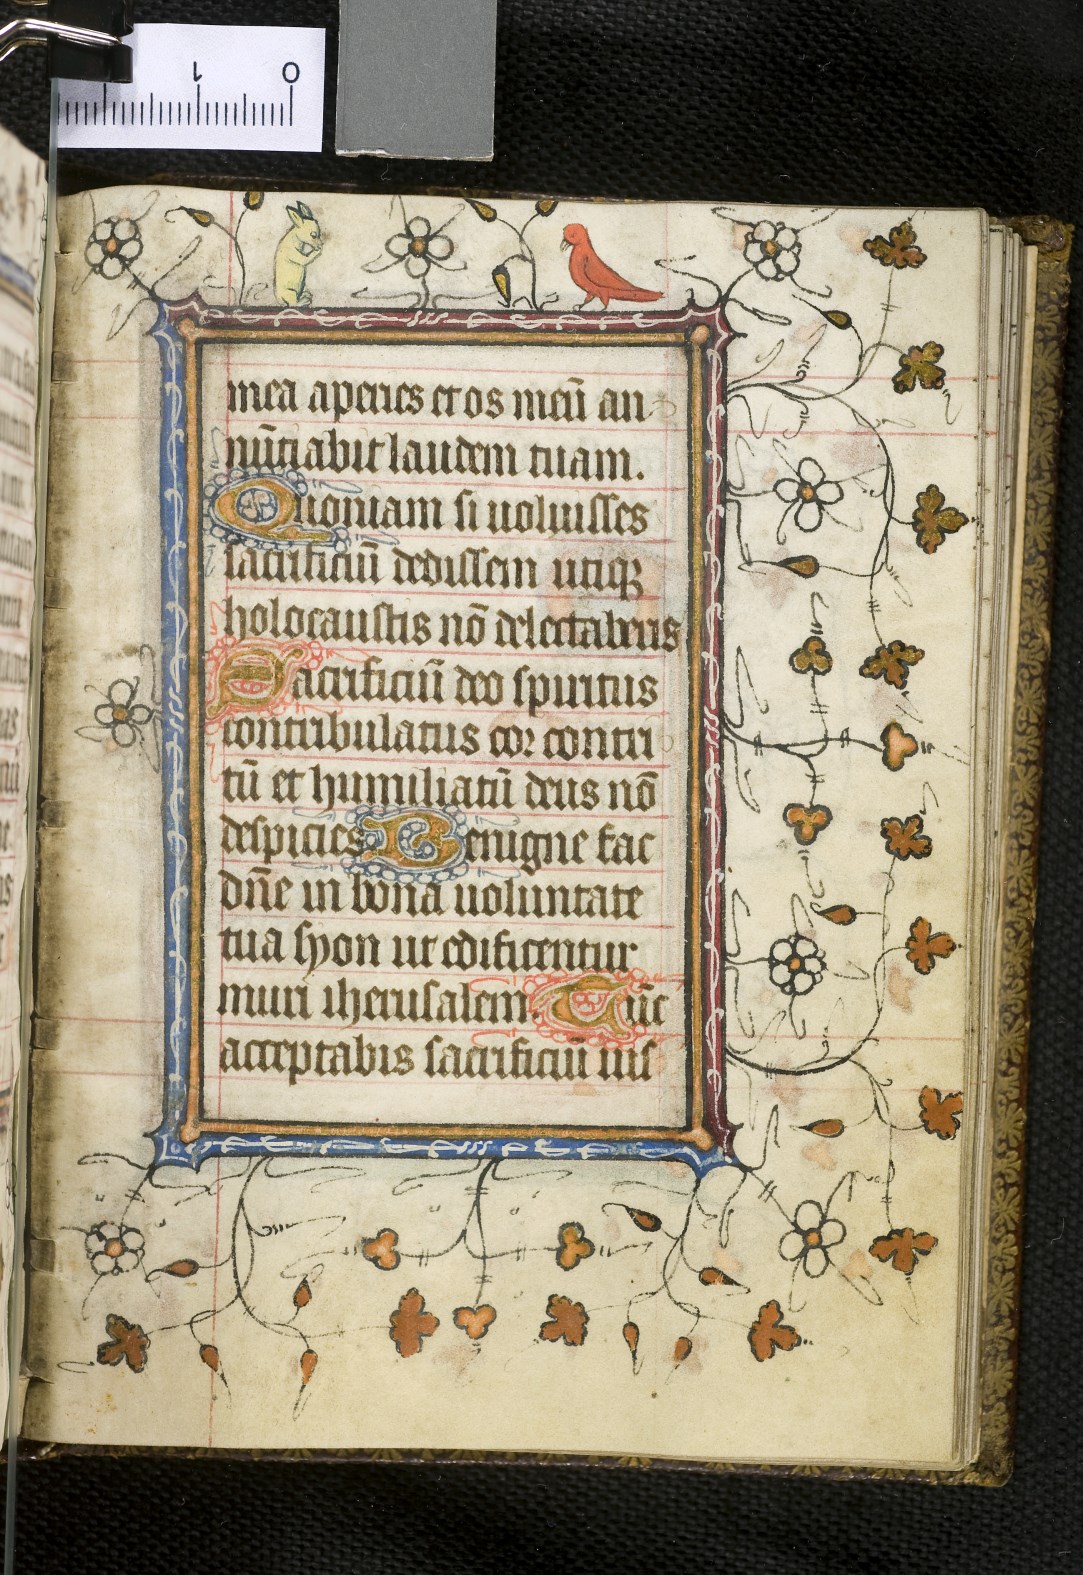 1 0
mea aperies et os meū an
nūtiabit laudem tuam.
Quoniam si uoluisses
sacrificiū dedissem utiqꝫ
holocaustis nō delectaberis
Sacrificiū deo spiritus
contribulatus cor contri
tū et humiliatū deus nō
despicies Benigne fac
dn̄e in bona uoluntate
tua syon ut edificentur
muri iherusalem. Tūc
acceptabis sacrificiū ius